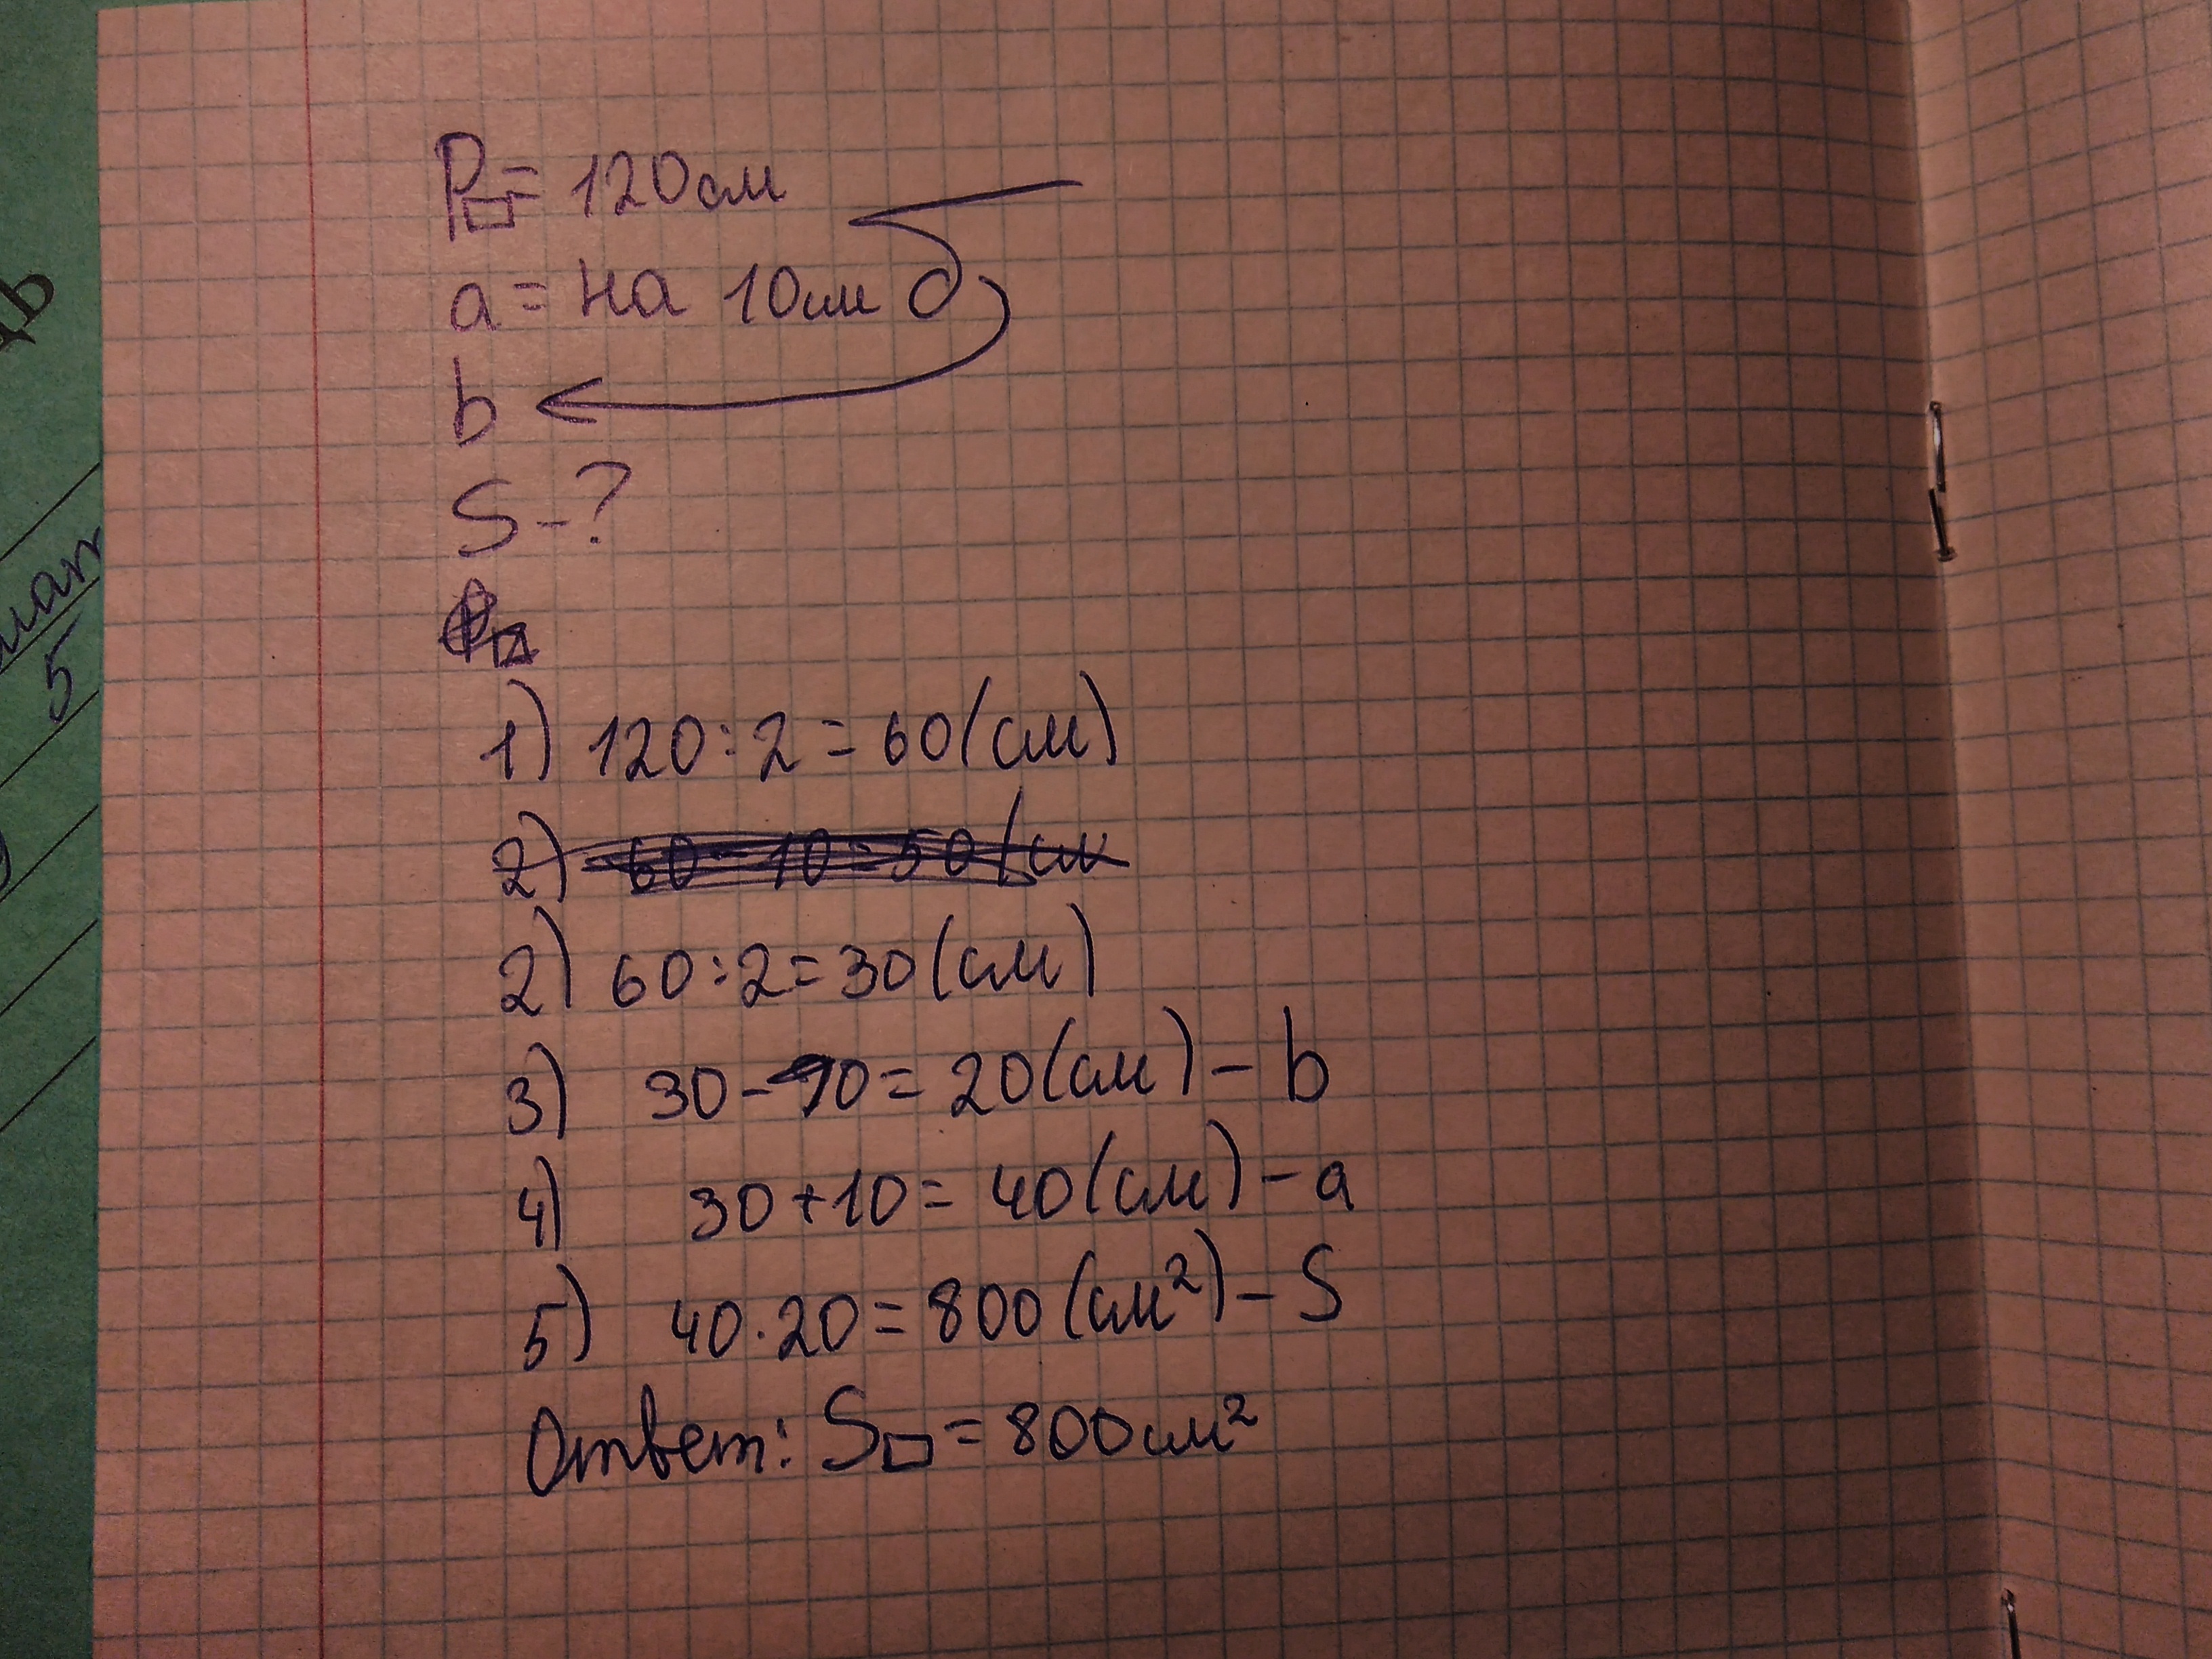 P□ = 120см
a = на 10см б
b
S - ?
1) 120 : 2 = 60 (см)
2) 60 - 10 = 50 (см
2) 60 : 2 = 30 (см)
3) 30 - 10 = 20 (см) - b
4) 30 + 10 = 40 (см) - a
5) 40 · 20 = 800 (см²) - S
Ответ: S□ = 800см²
5